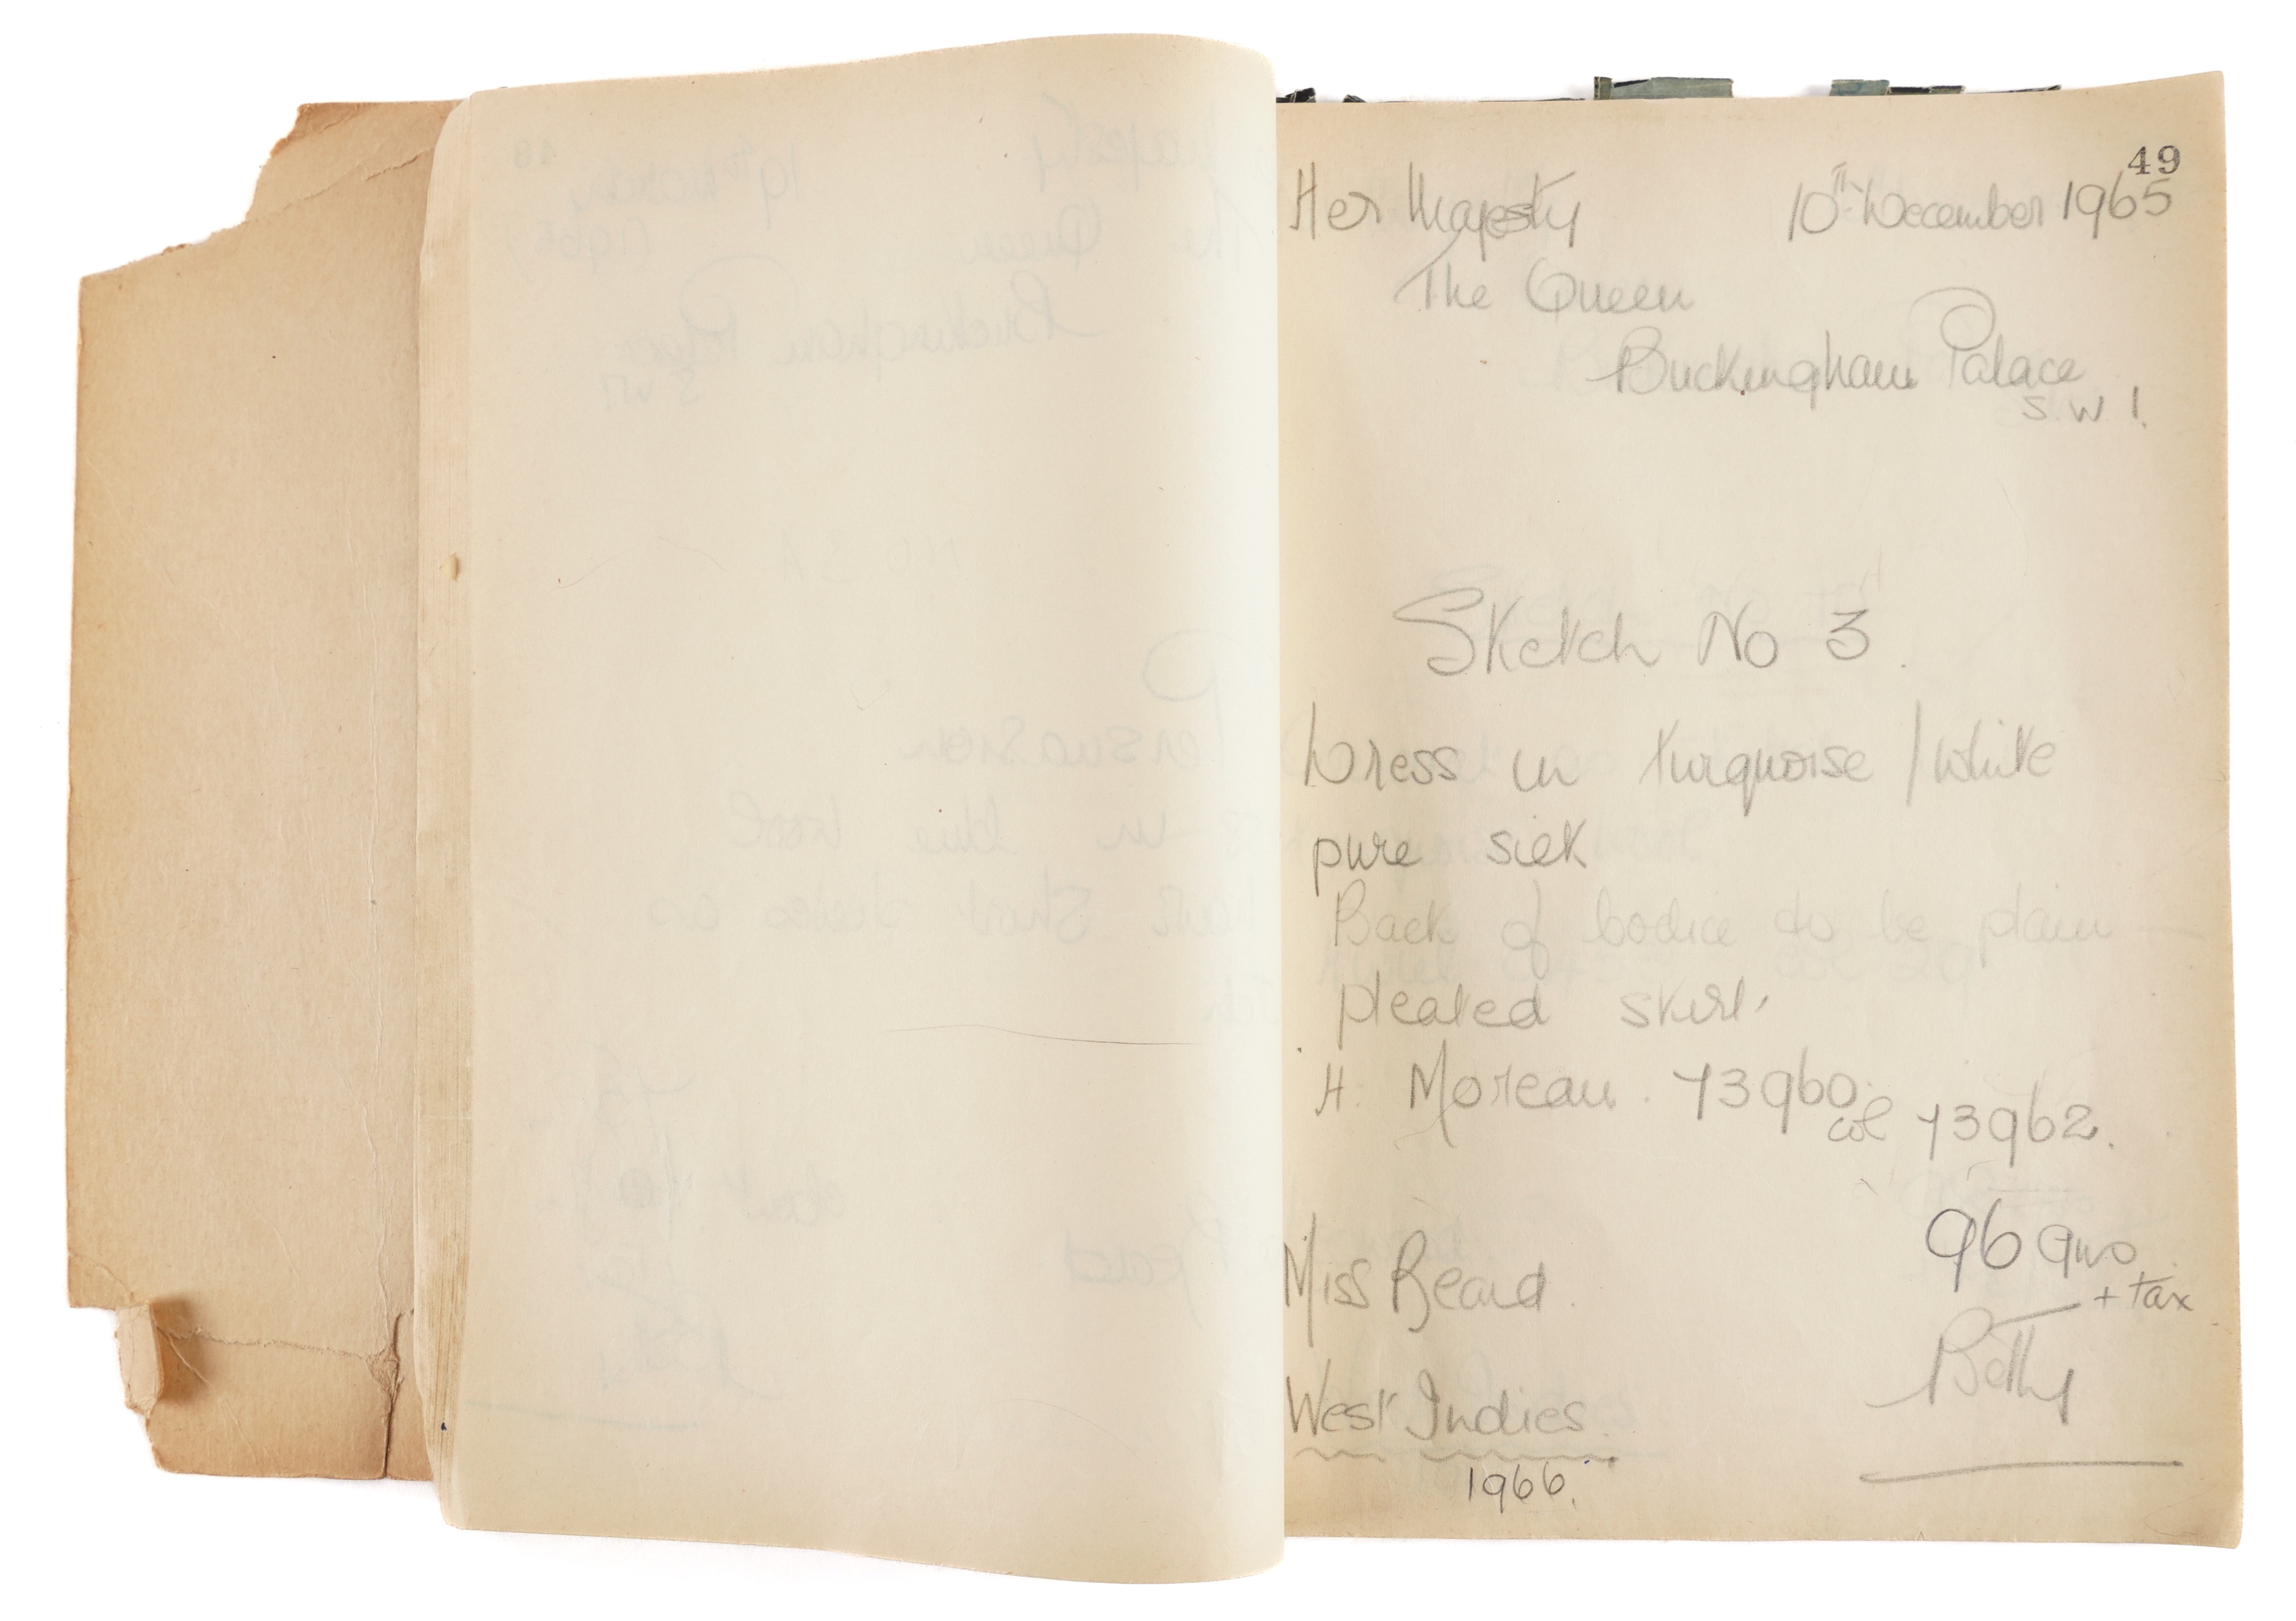 49
Her Majesty 10th December 1965
The Queen
Buckingham Palace
S.W.1.
Sketch No 3.
Dress in turquoise / white
pure silk
Back of bodice to be plain —
pleated skirt
H. Moreau. 73960
col 73962.
96 gns
+ tax
Miss Beard.
Betty
West Indies.
1966.